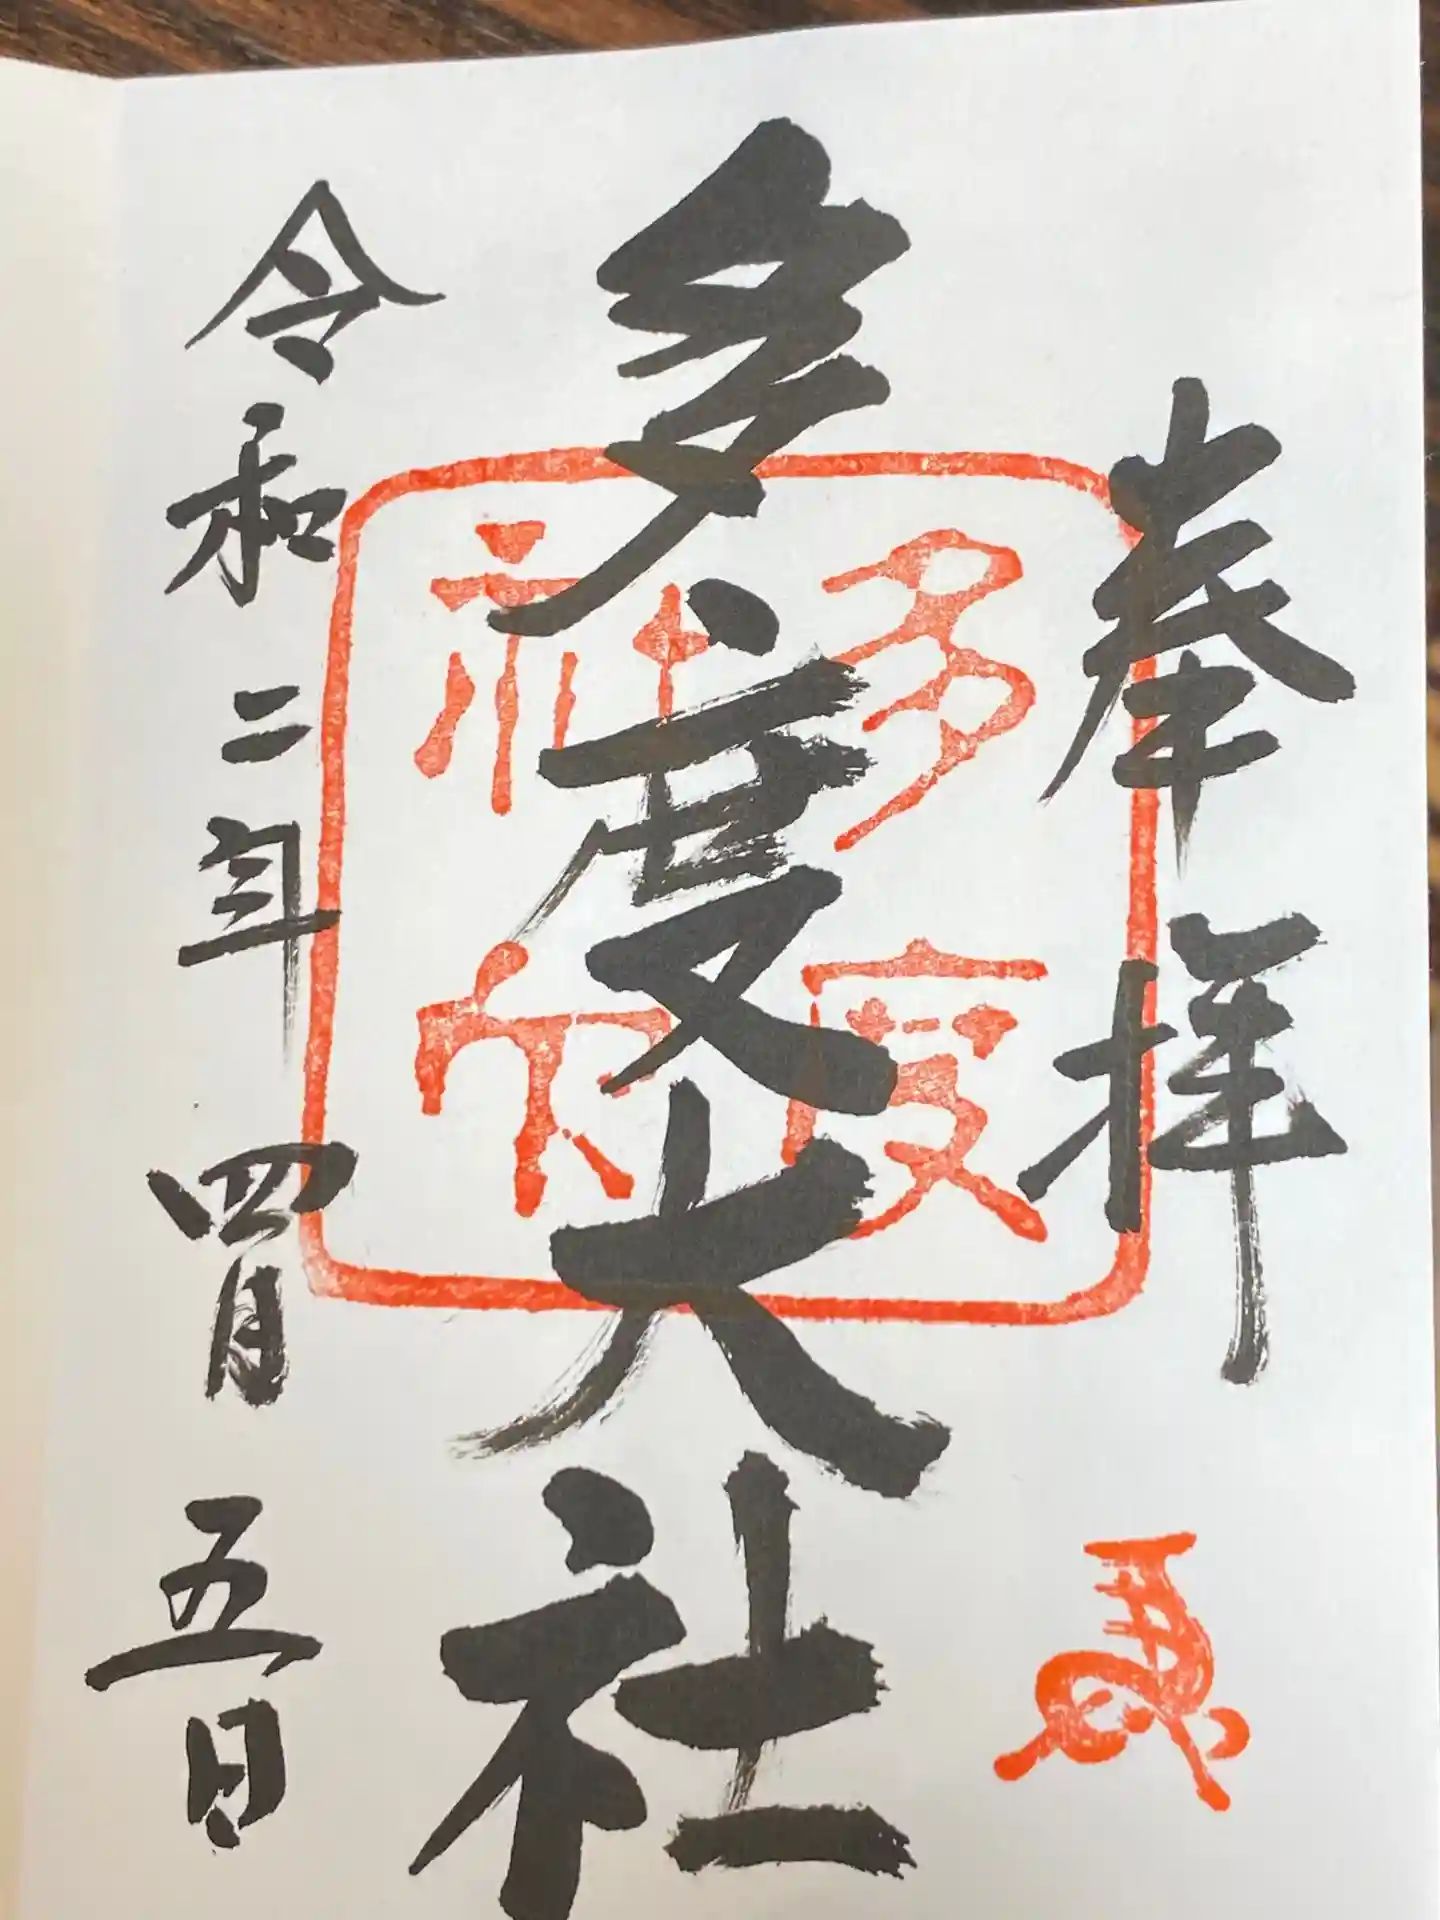 奉拝
多度大社
多度
社印
令和二年四月五日